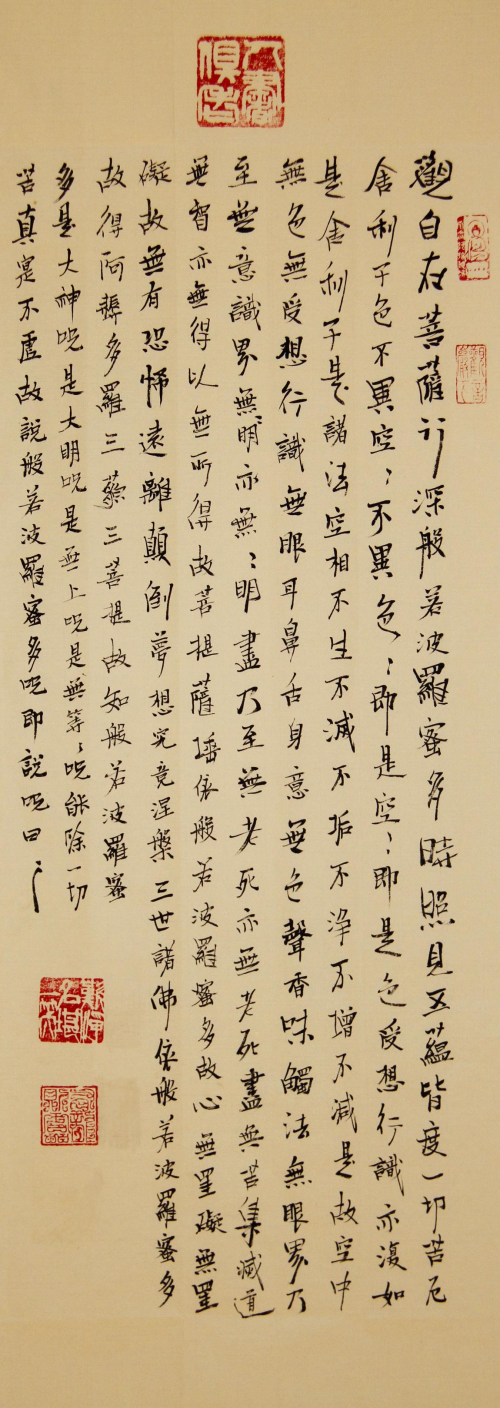 人書俱老
觀自在菩薩行深般若波羅蜜多時照見五蘊皆度一切苦厄
舍利子色不異空〻不異色〻即是空〻即是色受想行識亦復如
是舍利子是諸法空相不生不滅不垢不淨不增不減是故空中
無色無受想行識無眼耳鼻舌身意無色聲香味觸法無眼界乃
至無意識界無〻明亦無〻明盡乃至無老死亦無老死盡無苦集滅道
無智亦無得以無所得故菩提薩埵依般若波羅蜜多故心無罣礙無罣
礙故無有恐怖遠離顛倒夢想究竟涅槃三世諸佛依般若波羅蜜多
故得阿耨多羅三藐三菩提故知般若波羅蜜
多是大神咒是大明咒是無上咒是無等〻咒能除一切
苦真實不虛故說般若波羅蜜多咒即說咒曰〻